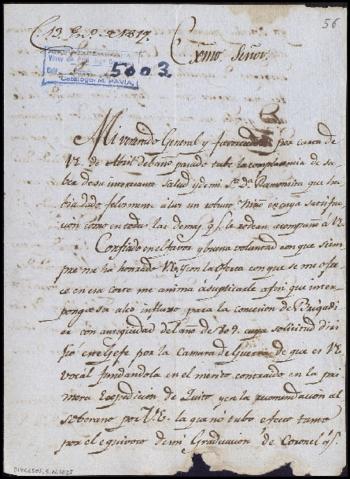 56
C. 13 En. 9 de 1817.
Exmo. Señor
5003
Catálogo M. PAVIA.
Mi venerado General y favorecedor: por carta de
V.E. de Abril del año pasado tube la complacencia de sa-
ber de su interesante Salud y de mi Sra. Da. Ramonita que ha
bia dado felizmente a luz un robusto Niño en cuya satisfac
cion como en todas las demas q. le rodean acompaño á V.E.
Confiado en el favor y buena voluntad con que siem
pre me ha honrado V.E. y con la oferta con que se me ofre
ce en esa Corte me anima á suplicarle á fin que inter-
ponga su alto influxo para la concesion de Brigadi
er con antiguedad del año de 809. cuya solicitud diri
jio en Gefe por la Camara de Guerra de que es V.E.
vocál fundandola en el merito contraido en la pri
mera Expedicion de Quito y en la recomendacion al
soberano por V.E. la que no tubo efecto tanto
por el equivoco de mi Graduacion de Coronel q.
DIVERSOS, 3, N. 1025